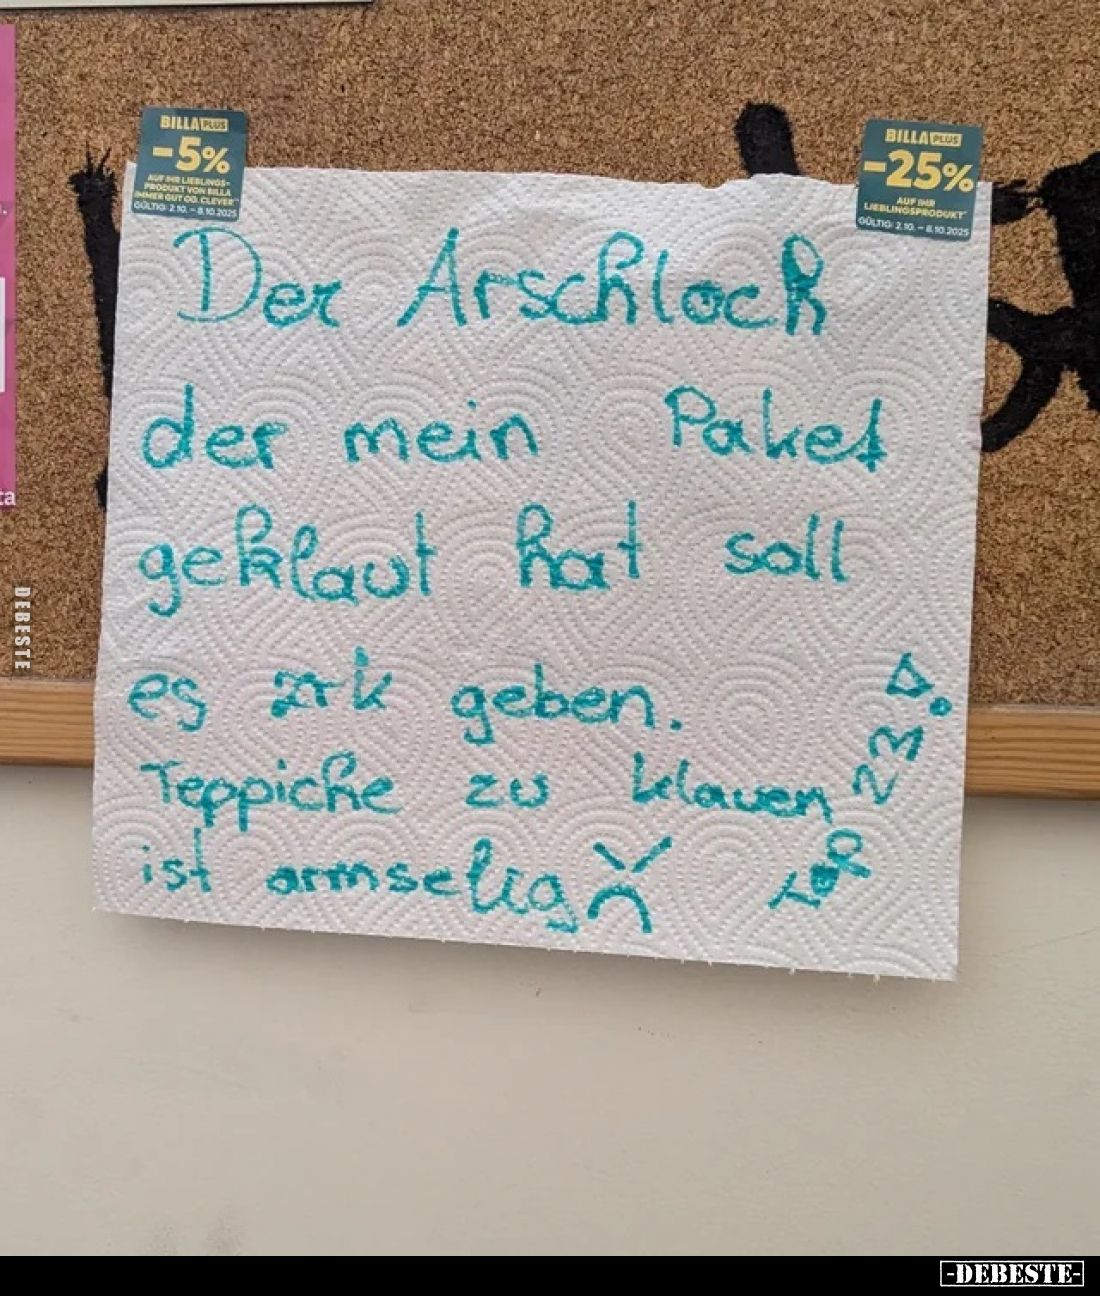 BILLA PLUS
-5%
AUF IHR LIEBLINGS-
PRODUKT VON BILLA
IMMER GUT OD. CLEVER
GÜLTIG: 2.10. – 8.10.2025
BILLA PLUS
-25%
AUF IHR
LIEBLINGSPRODUKT
GÜLTIG: 2.10. – 8.10.2025
Der Arschloch
der mein Paket
geklaut hat soll
es zrk geben.
Teppiche zu klauen
ist armselig
Top 23 D.
ta
DEBESTE
-DEBESTE-